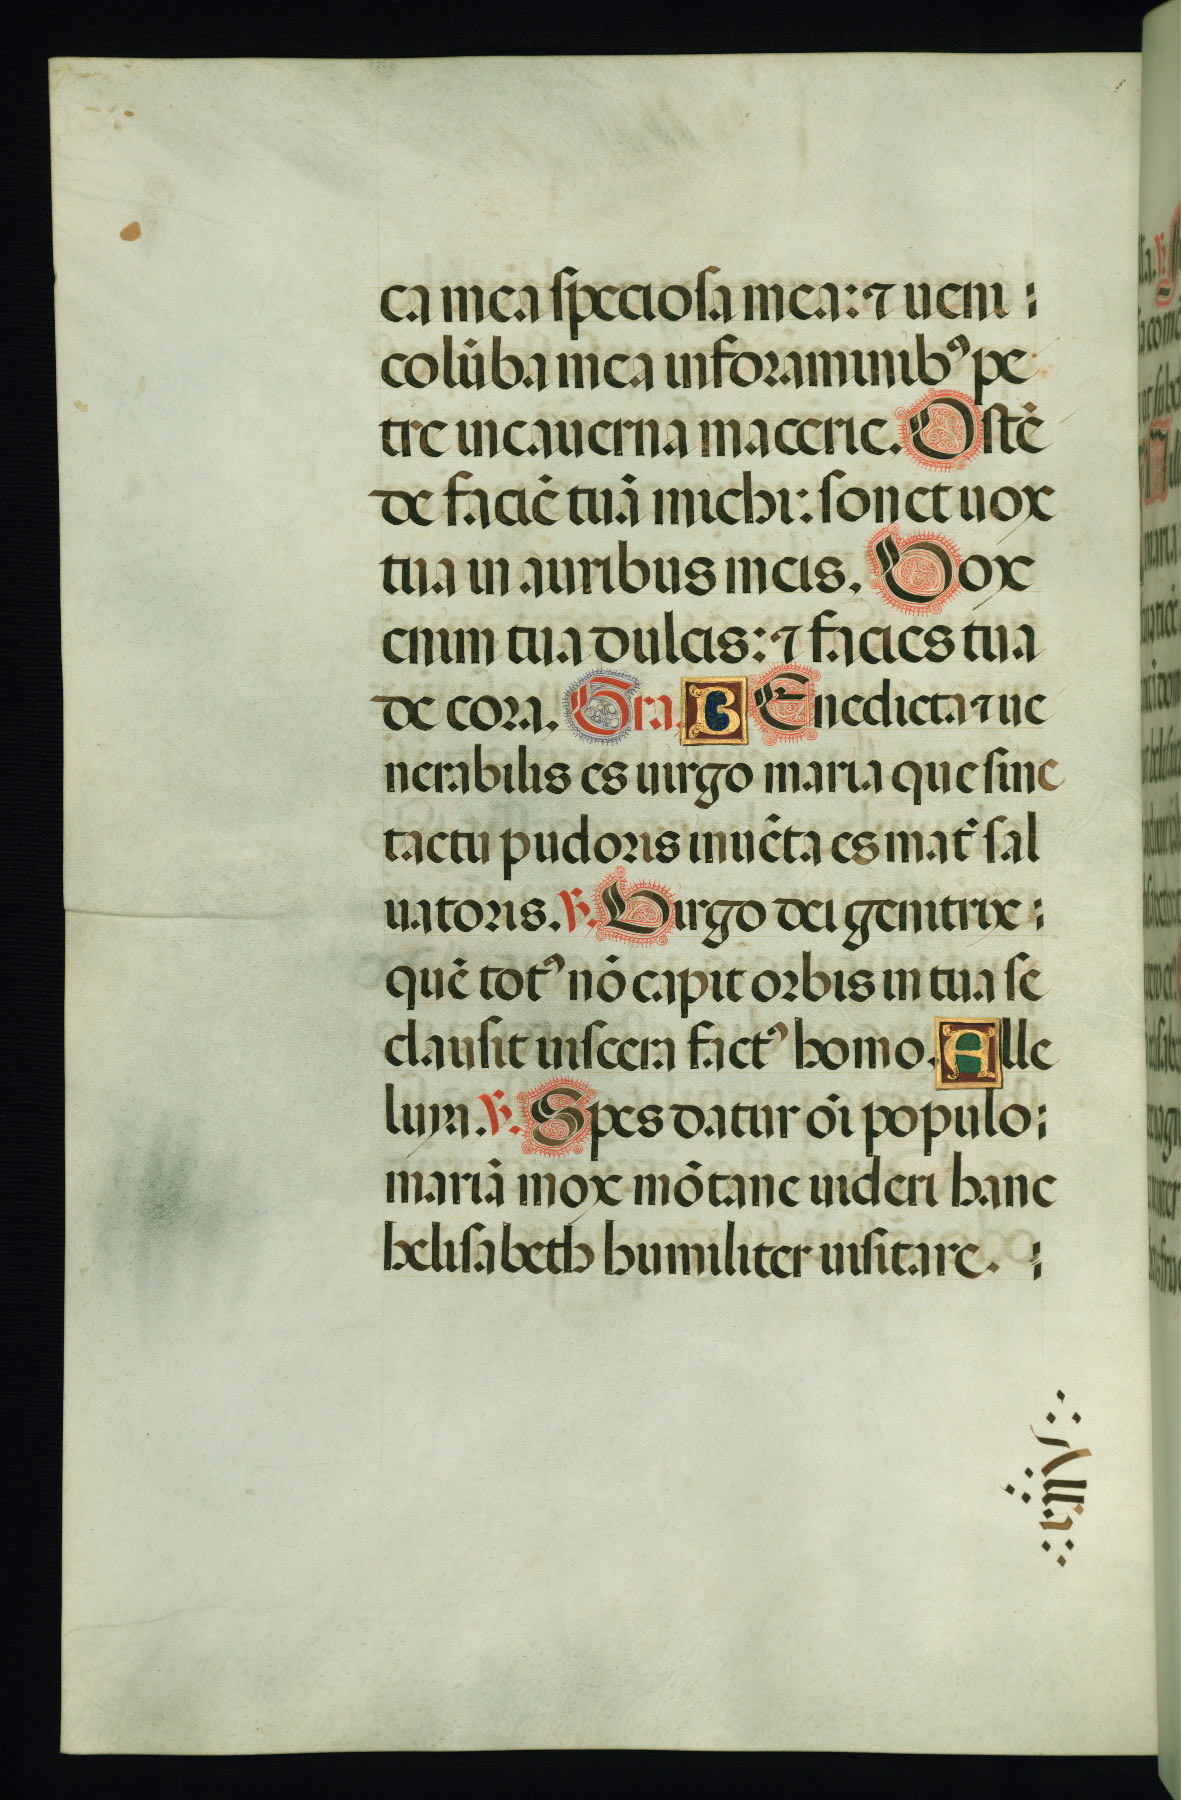 ca mea speciosa mea: ⁊ ueni :
colūba mea in foraminibꝰ pe
tre in cauerna macerie. Ostē
de faciē tuā michi: sonet uox
tua in auribus meis. Vox
enim tua dulcis: ⁊ facies tua
decora. Gra. BEnedicta ⁊ ue
nerabilis es uirgo maria que sine
tactu pudoris inuēta es mat̄ sal
uatoris. ℣. Virgo dei genitrix :
quē totꝰ nō capit orbis in tua se
clausit uiscera factꝰ homo. Alle
luya. ℣. Spes datur oī populo :
mariā mox mōtane uideri hanc
helisabeth humiliter uisitare. :
Alla